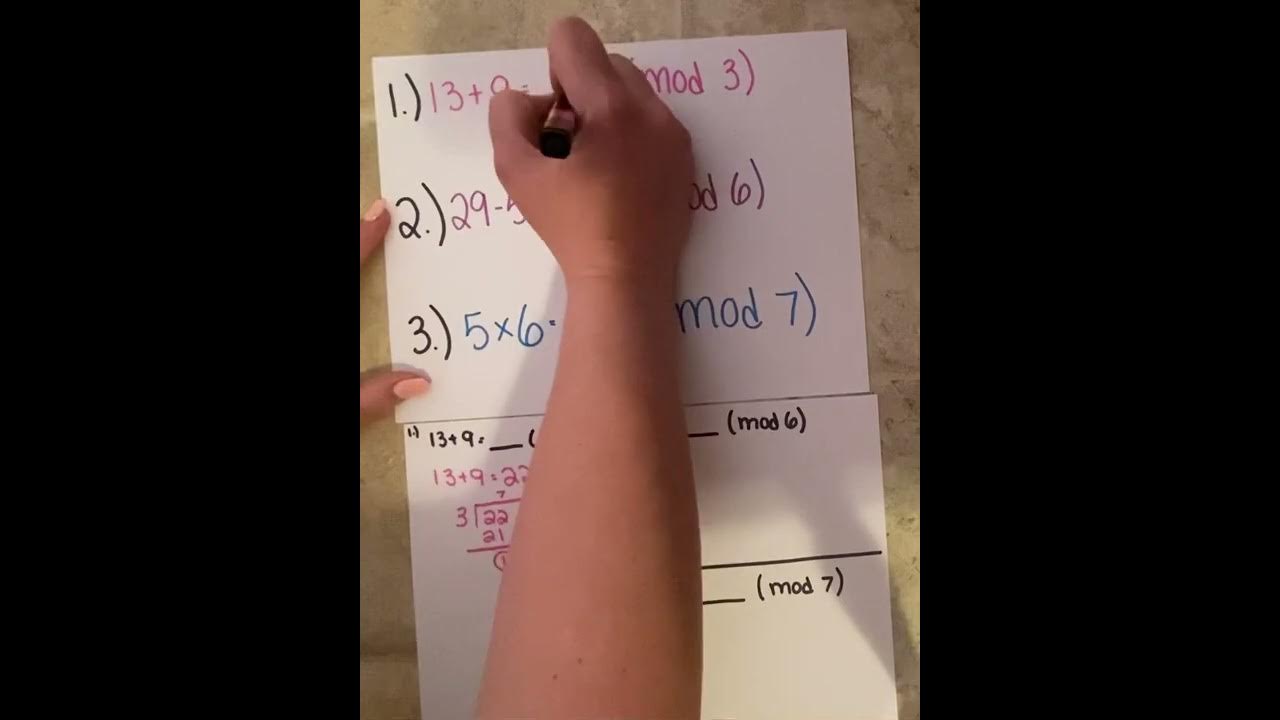 1.) 13+9= mod 3)
2.) 29-5 mod 6)
3.) 5×6= mod 7)
1.) 13+9= __ ( __ (mod 6)
13+9=22
7
3 22
21
__ (mod 7)